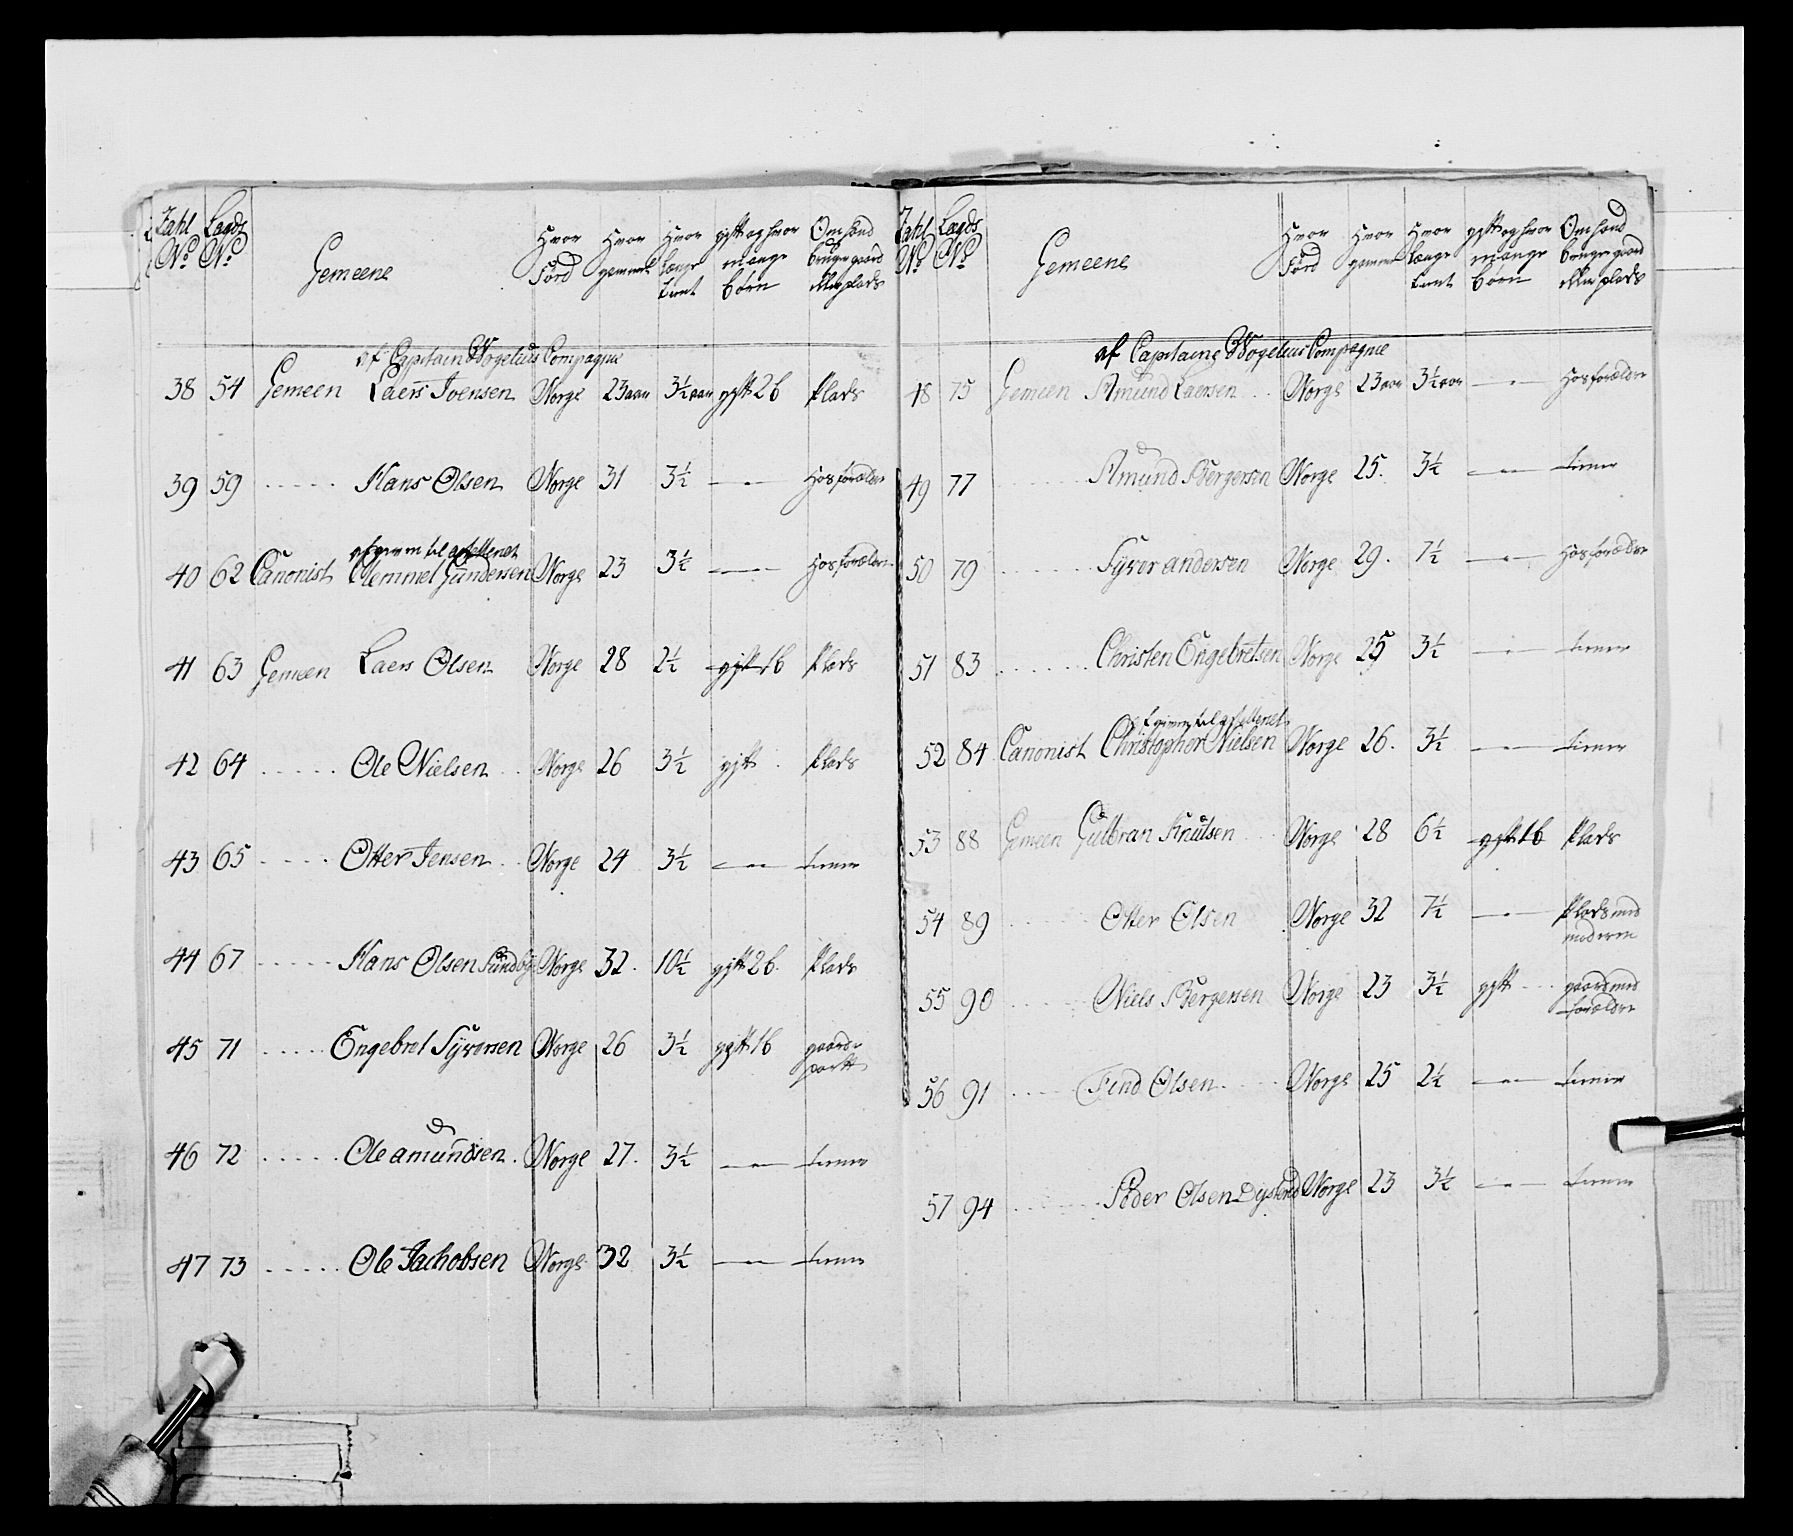 Zahl No Lagds No Gemeene Hvor Förd Hvor gammel Hvor længe tient gift og hvor mange börn Om hand bruger gaard eller plads
af Capitain Wogelius Compagnie
38 54 Gemeen Laers Joensen Norge 23 aar 3½ aar gift 2 b Plads
39 59 ..... Hans Olsen Norge 31 3½ — Hos forældre
af givne til artelleriet
40 62 Canonist Clemmet Gundersen Norge 23 3½ — Hos forældre
41 63 Gemeen Laers Olsen Norge 28 2½ gift 1 b Plads
42 64 ..... Ole Nielsen Norge 26 3½ gift Plads
43 65 .... Otter Jensen Norge 24 3½ — tiener
44 67 ..... Hans Olsen Sundbye Norge 32. 10½ gift 2 b. Plads
45 71 ..... Engebret Syversen Norge 26 3½ gift 1 b gaarde
part
46 72 ..... Ole amundsen. Norge 27. 3½ — tiener
47 73 ..... Ole Jachobsen Norge 32 3½ — tiener
Zahl No Lagds No Gemeene Hvor Förd Hvor gammel Hvor længe tient gift og hvor mange börn Om hand bruger gaard eller plads
af Capitaine Wogelius Compagnie
48 75 Gemeen Amund Laersen Norge 23 aar 3½ aar — Hos forældre
49 77 ..... Amund Bergersen Norge 25. 3½ — tiener
50 79 ..... Syver andersen Norge 29. 7½ — Hos forældre
51 83 ..... Christen Engebretsen Norge 25 3½ — tiener
af givne til artelleriet
52 84 Canonist Christopher Nielsen Norge 26. 3½ — tiener
53 88 Gemeen Gulbran Knutsen Norge 28 6½ gift 1 b Plads
54 89 ..... Otter Olsen Norge 32 7½ — Plads med
moderen
55 90 ..... Niels Bergersen Norge 23 3½ gift gaard med
forældre
56 91 ..... Find Olsen Norge 25 2½ — tiener
57 94 ..... Peder Olsen Norge 23 3½ — tiener